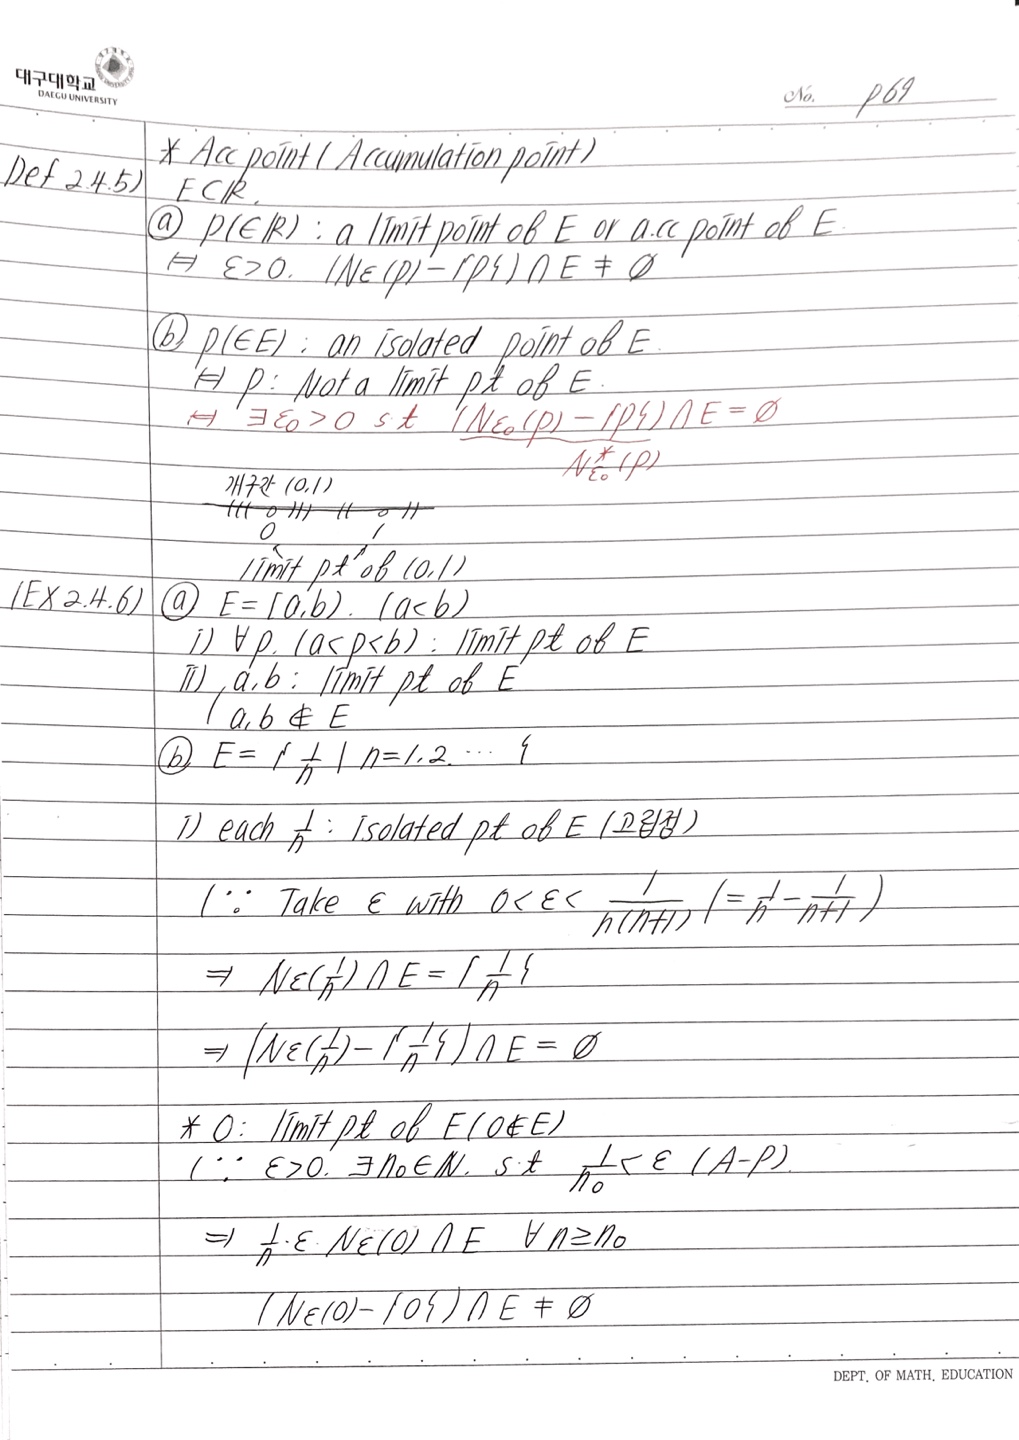 대구대학교
DAEGU UNIVERSITY
No. p69
* Acc point (Accumulation point)
Def 2.4.5)
E⊂ℝ.
ⓐ p(∈ℝ) : a limit point of E or acc point of E.
⇔ ε>0. (Nε(p)-{p})∩E ≠ ∅
ⓑ p(∈E) : an isolated point of E.
⇔ p: Not a limit pt of E.
⇔ ∃ε₀>0 s.t (Nε₀(p)-{p})∩E=∅
N*ε₀(p)
개구간 (0,1)
0 1
limit pt of (0,1)
(EX 2.4.6) ⓐ E=[a,b). (a<b)
i) ∀p. (a<p<b) : limit pt of E
ii) a,b : limit pt of E
a,b ∉ E
ⓑ E = { 1/n | n=1.2. ⋯ }
i) each 1/n : isolated pt of E (고립점)
(∵ Take ε with 0<ε< 1/n(n+1) (= 1/n - 1/n+1)
⇒ Nε(1/n)∩E = {1/n}
⇒ (Nε(1/n)-{1/n})∩E = ∅
* 0: limit pt of E (0∉E)
(∵ ε>0. ∃n₀∈ℕ. s.t 1/n₀ < ε (A-P)
⇒ 1/n ∙ε Nε(0)∩E ∀n≥n₀
(Nε(0)-{0})∩E ≠ ∅
DEPT. OF MATH. EDUCATION